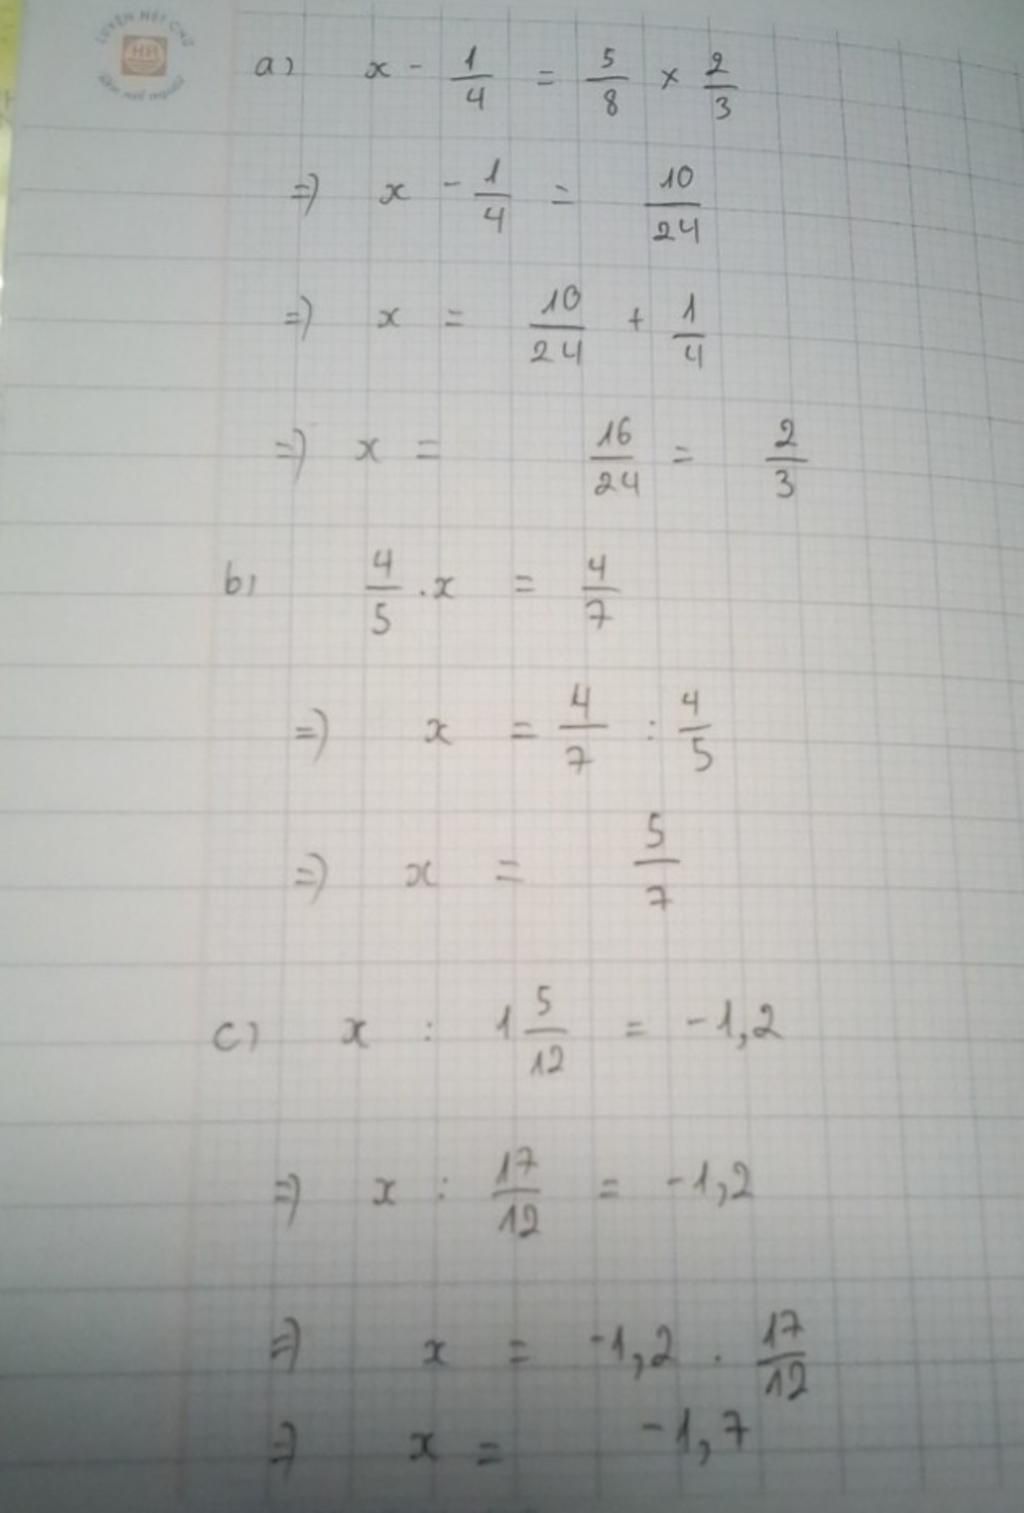 LUYỆN NÉT CHỮ
HR
a) x - 1/4 = 5/8 × 2/3
=) x - 1/4 = 10/24
=) x = 10/24 + 1/4
=) x = 16/24 = 2/3
b) 4/5 . x = 4/7
=) x = 4/7 : 4/5
=) x = 5/7
c) x : 1 5/12 = -1,2
=) x : 17/12 = -1,2
=) x = -1,2 . 17/12
=) x = -1,7